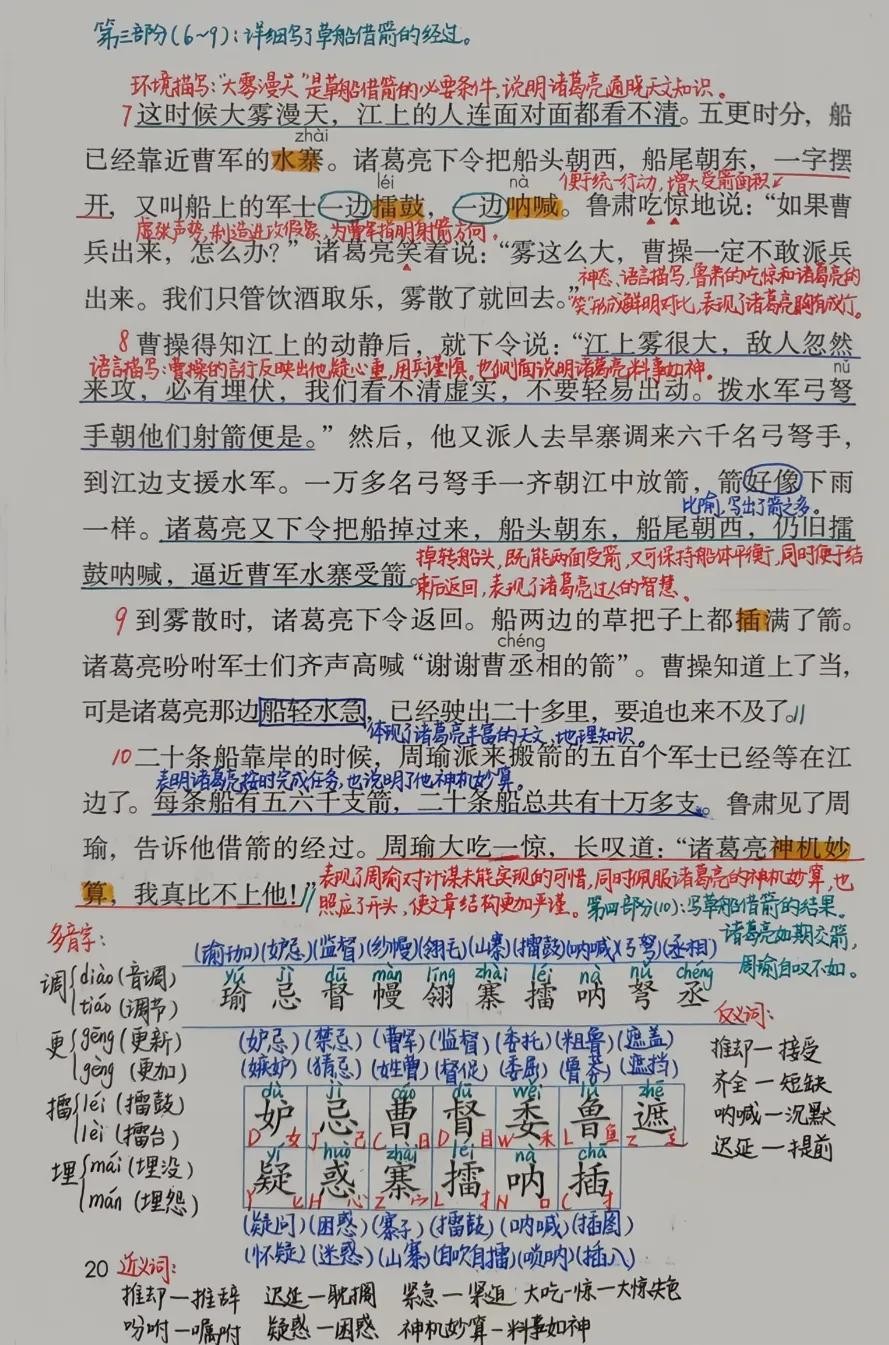 第三部分(6~9):详细写了草船借箭的经过。
环境描写:“大雾漫天”是草船借箭的必要条件,说明诸葛亮通晓天文知识。
7 这时候大雾漫天，江上的人连面对面都看不清。五更时分，船
zhài
已经靠近曹军的水寨。诸葛亮下令把船头朝西，船尾朝东，一字摆
léi nà 便于统一行动,增大受箭面积
开，又叫船上的军士一边擂鼓，一边呐喊。鲁肃吃惊地说：“如果曹
虚张声势,制造进攻假象,为曹军指明射箭方向。
兵出来，怎么办？”诸葛亮笑着说：“雾这么大，曹操一定不敢派兵
神态、语言描写,鲁肃的吃惊和诸葛亮的
出来。我们只管饮酒取乐，雾散了就回去。”
“笑”形成鲜明对比,表现了诸葛亮胸有成竹。
8 曹操得知江上的动静后，就下令说：“江上雾很大，敌人忽然
语言描写:曹操的言行反映出他疑心重,用兵谨慎。也侧面说明诸葛亮料事如神。
nǔ
来攻，必有埋伏，我们看不清虚实，不要轻易出动。拨水军弓弩
手朝他们射箭便是。”然后，他又派人去旱寨调来六千名弓弩手，
到江边支援水军。一万多名弓弩手一齐朝江中放箭，箭好像下雨
比喻,写出了箭之多。
一样。诸葛亮又下令把船掉过来，船头朝东，船尾朝西，仍旧擂
鼓呐喊，逼近曹军水寨受箭。
掉转船头,既能两面受箭,又可保持船体平衡,同时便于结
束后返回,表现了诸葛亮过人的智慧。
9 到雾散时，诸葛亮下令返回。船两边的草把子上都插满了箭。
chéng
诸葛亮吩咐军士们齐声高喊“谢谢曹丞相的箭”。曹操知道上了当，
可是诸葛亮那边船轻水急，已经驶出二十多里，要追也来不及了。
体现了诸葛亮丰富的天文、地理知识。
10 二十条船靠岸的时候，周瑜派来搬箭的五百个军士已经等在江
表明诸葛亮按时完成任务,也说明了他神机妙算。
边了。每条船有五六千支箭，二十条船总共有十万多支。鲁肃见了周
瑜，告诉他借箭的经过。周瑜大吃一惊，长叹道：“诸葛亮神机妙
算，我真比不上他！”
表现了周瑜对计谋未能实现的可惜,同时佩服诸葛亮的神机妙算,也
照应了开头,使文章结构更加严谨。
第四部分(10):写草船借箭的结果。
诸葛亮如期交箭,
周瑜自叹不如。
多音字:
调 diào(音调)
tiáo(调节)
更 gēng(更新)
gèng(更加)
擂 léi(擂鼓)
lèi(擂台)
埋 mái(埋没)
mán(埋怨)
(瑜珈)(妒忌)(监督)(幔)(翎毛)(山寨)(擂鼓)(呐喊)(弓弩)(丞相)
yú jì dū màn líng zhài léi nà nǔ chéng
瑜 忌 督 幔 翎 寨 擂 呐 弩 丞
(妒忌)(禁忌)(曹军)(监督)(委托)(粗鲁)(遮盖)
(嫉妒)(猜忌)(姓曹)(督促)(委屈)(鲁莽)(遮挡)
dù jì cáo dū wěi lǔ zhē
妒 忌 曹 督 委 鲁 遮
D 女 J 己 C 日 D 目 W 禾 L 鱼 Z 辶
yí huò zhài léi nà chā
疑 惑 寨 擂 呐 插
Y 匕 H 心 Z 宀 L 扌 N 口 C 扌
(疑问)(困惑)(寨子)(擂鼓)(呐喊)(插图)
(怀疑)(迷惑)(山寨)(自吹自擂)(唢呐)(插入)
反义词:
推却—接受
齐全—短缺
呐喊—沉默
迟延—提前
20 近义词:
推却—推辞 迟延—耽搁 紧急—紧迫 大吃一惊—大惊失色
吩咐—嘱咐 疑惑—困惑 神机妙算—料事如神